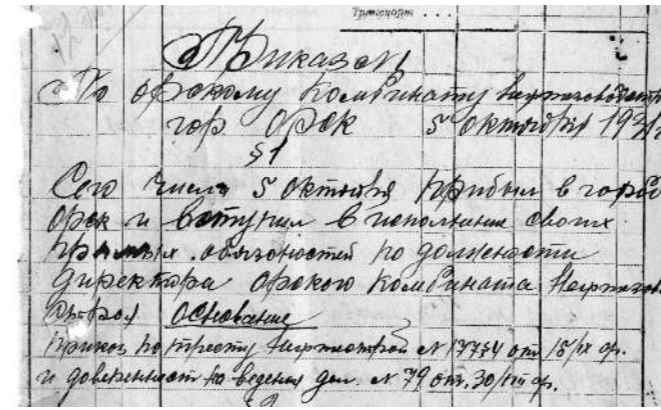 Транспорт . . .
Приказ №1
По орскому Комбинату
гор Орск 5 октября 193
§1
Сего числа 5 октября прибыл в город
Орск и вступил в исполнение своих
прямых обязоностей по должности
Директора орского Комбината
Основание
Приказ по тресту Нефтестрой № 1774 от 15/IX ср.
и доверенност на ведения дел. № 79 от. 30/VIII ср.